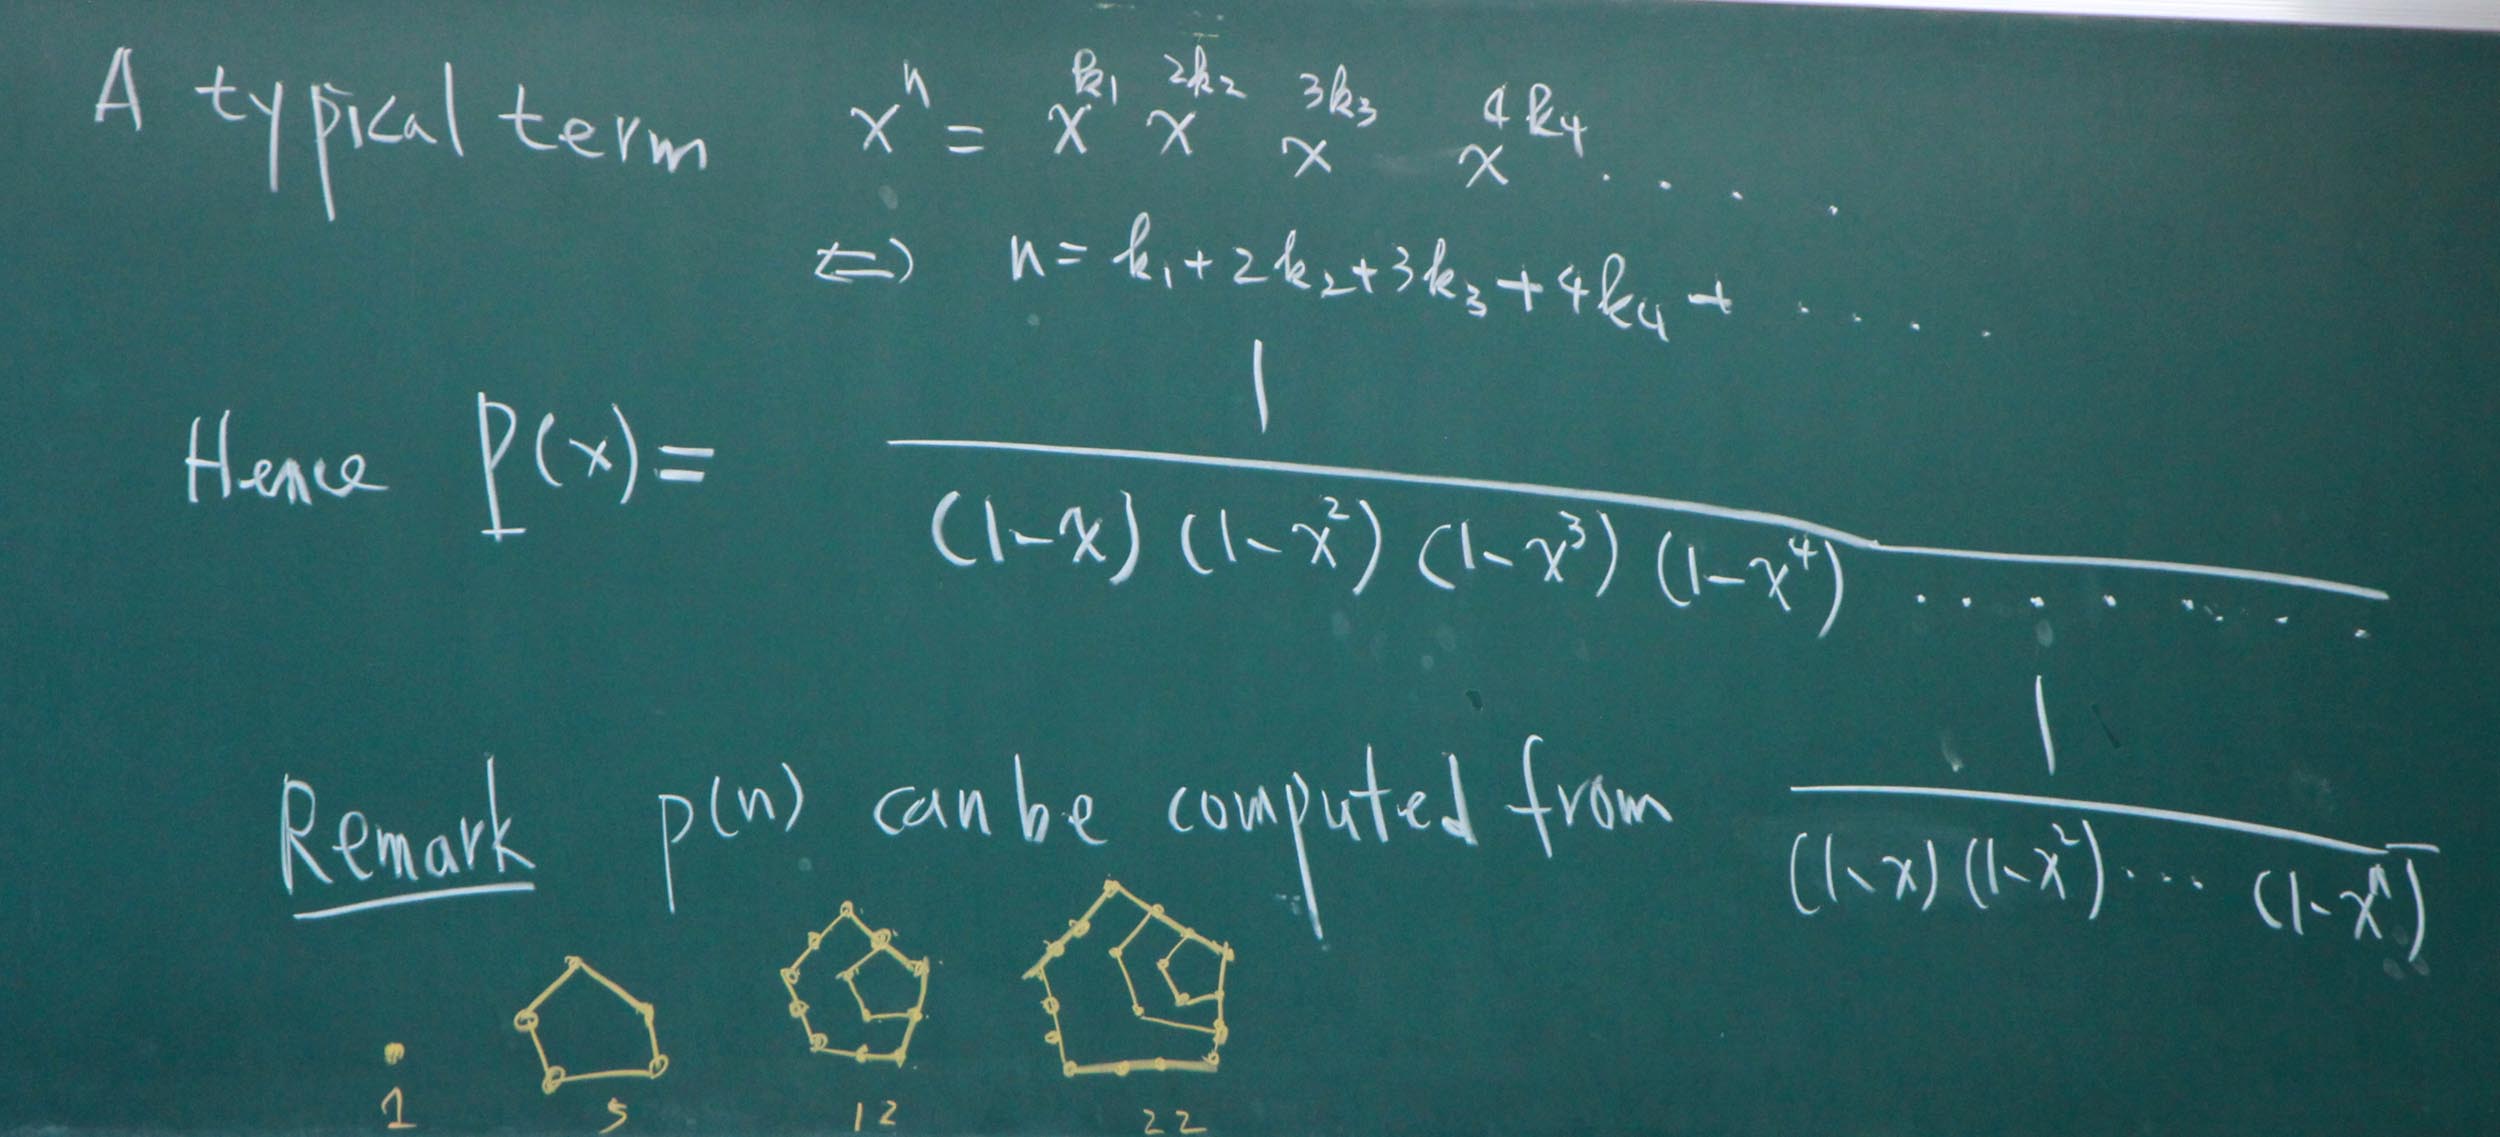 A typical term xⁿ = x^{k₁} x^{2k₂} x^{3k₃} x^{4k₄} . . . .
⇔ n = k₁ + 2k₂ + 3k₃ + 4k₄ + . . . .
Hence P(x) = 1 / (1-x) (1-x²) (1-x³) (1-x⁴) . . . . . . .
Remark p(n) can be computed from 1 / (1-x) (1-x²) ... (1-xⁿ)
1 5 12 22